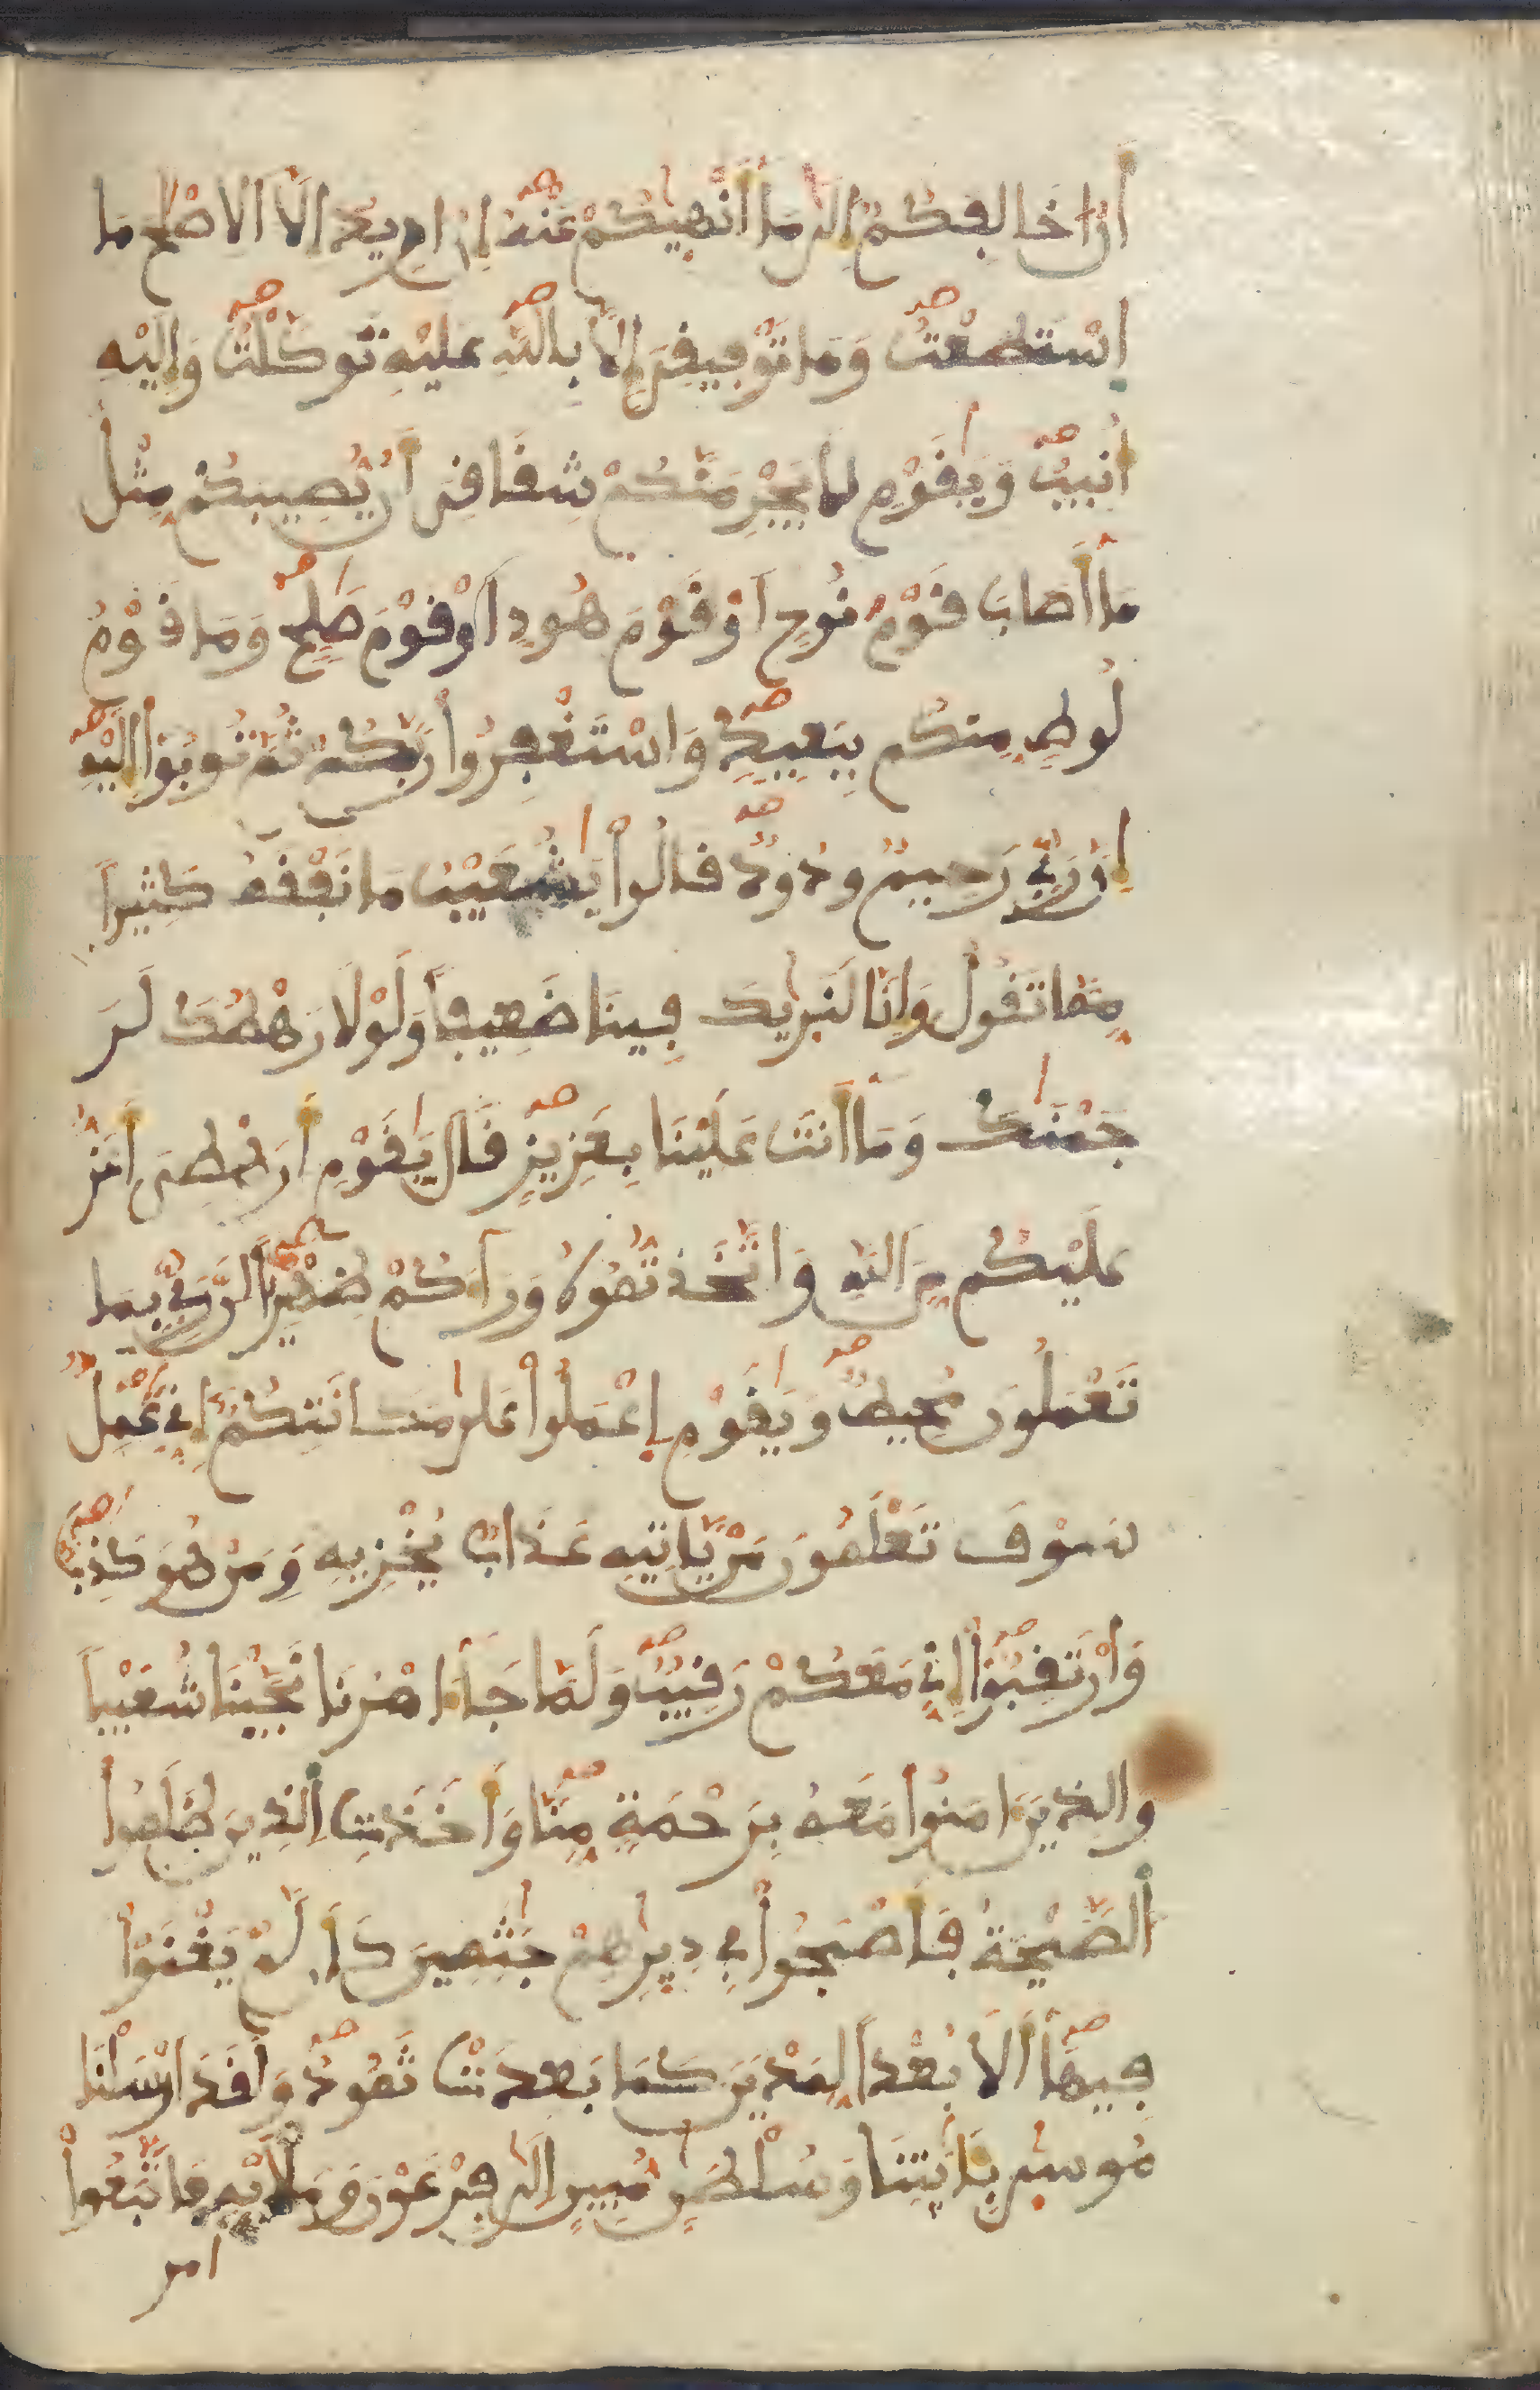 أَنْ اخَالِفَكُمُ إِلَىٰ مَا أَنْهَىٰكُمْ عَنْهُ إِنُ ارِيدُ إِلَّا أَلِاصْلَٰحَ مَا
اَسْتَطَعْتُ وَمَا تَوْفِيقِيَ إِلَّا بِاللَّهِ عَلَيْهِ تَوَكَّلْتُ وَإِلَيْهِ
أُنِيبُ وَيَٰقَوْمِ لَا يَجْرِمَنَّكُمْ شِقَاقِيَ أَنْ يُّصِيبَكُم مِّثْلُ
مَا أَصَابَ قَوْمَ نُوحٍ اَوْ قَوْمَ هُودٍ اَوْ قَوْمَ صَٰلِحٍ وَمَا قَوْمُ
لُوطٍ مِّنكُم بِبَعِيدٍ وَاسْتَغْفِرُوا رَبَّكُمْ ثُمَّ تُوبُوا إِلَيْهِ
إِنَّ رَبِّي رَحِيمٌ وَدُودٌ قَالُوا يَٰشُعَيْبُ مَا نَفْقَهُ كَثِيراً
مِّمَّا تَقُولُ وَإِنَّا لَنَرَىٰكَ فِينَا ضَعِيفاً وَلَوْلَا رَهْطُكَ لَرَ
جَمْنَٰكَ وَمَا أَنتَ عَلَيْنَا بِعَزِيزٍ قَالَ يَٰقَوْمِ أَرَهْطِيَ أَعَزُّ
عَلَيْكُم مِّنَ اَللَّهِ وَاتَّخَذتُّمُوهُ وَرَاءَكُمْ ظِهْرِيّاً اِنَّ رَبِّي بِمَا
تَعْمَلُونَ مُحِيطٌ وَيَٰقَوْمِ اِعْمَلُوا عَلَىٰ مَكَانَتِكُمُ إِنِّي عَٰمِلٌ
سَوْفَ تَعْلَمُونَ مَنْ يَّاتِيهِ عَذَابٌ يُخْزِيهِ وَمَنْ هُوَ كَٰذِبٌ
وَارْتَقِبُوا إِنِّي مَعَكُمْ رَقِيبٌ وَلَمَّا جَاءَ امْرُنَا نَجَّيْنَا شُعَيْباً
وَالذِينَ ءَامَنُوا مَعَهُ بِرَحْمَةٍ مِّنَّا وَأَخَذَتِ اِلذِينَ ظَلَمُوا
اُلصَّيْحَةُ فَأَصْبَحُوا فِي دِيَٰرِهِمْ جَٰثِمِينَ كَأَن لَّمْ يَغْنَوْا
فِيهَا أَلَا بُعْداً لِّمَدْيَنَ كَمَا بَعِدَتْ ثَمُودُ وَلَقَدَ اَرْسَلْنَا
مُوسَىٰ بِـَٔايَٰتِنَا وَسُلْطَٰنٍ مُّبِينٍ اِلَىٰ فِرْعَوْنَ وَمَلَإِيْهِ فَاتَّبَعُوا
امر